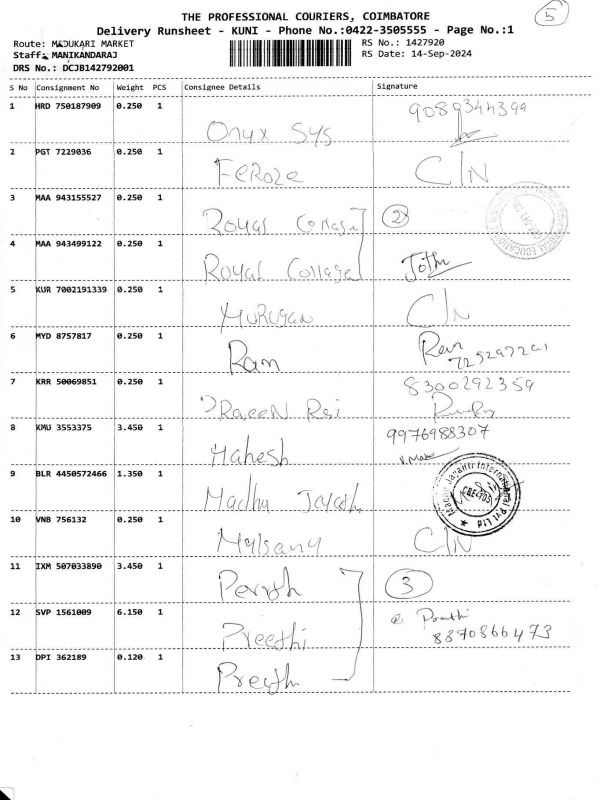 THE PROFESSIONAL COURIERS, COIMBATORE
5
Delivery Runsheet - KUNI - Phone No.:0422-3505555 - Page No.:1
Route: MADUKARI MARKET
RS No.: 1427920
Staff: MANIKANDARAJ
RS Date: 14-Sep-2024
DRS No.: DCJB142792001
S No Consignment No Weight PCS Consignee Details Signature
1 HRD 750187909 0.250 1 Onyx Sys 9089344399
2 PGT 7229036 0.250 1 Feroze C/N
3 MAA 943155527 0.250 1 Royal College 2
4 MAA 943499122 0.250 1 Royal College Jothi
5 KUR 7002191339 0.250 1 Murugan C/N
6 MYD 8757817 0.250 1 Ram
7 KRR 50069851 0.250 1 8300292359
8 KMU 3553375 3.450 1 Mahesh 9976988307
9 BLR 4450572466 1.350 1 Madha
10 VNB 756132 0.250 1 C/N
11 IXM 507033890 3.450 1 3
12 SVP 1561009 6.150 1 Preethi 8870866473
13 DPI 362189 0.120 1